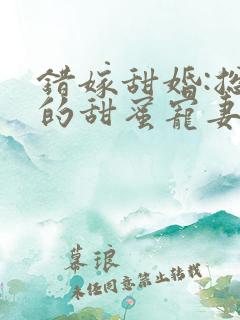 錯嫁甜婚:總
的甜蜜寵妻
幕琅
未經同意禁止轉載